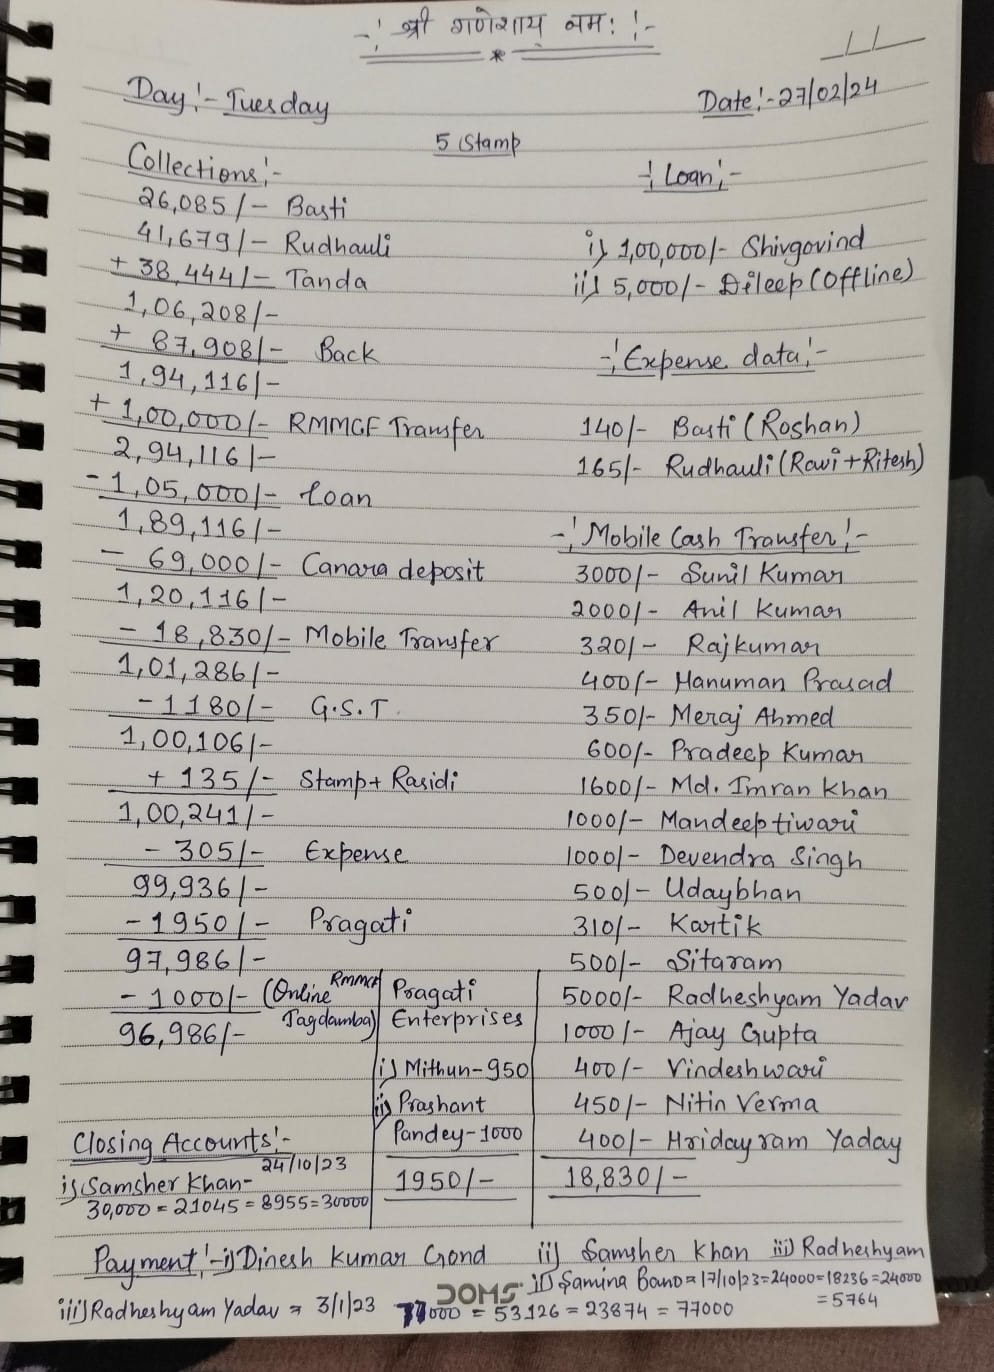 -! श्री गणेशाय नमः !-
Day!- Tuesday
Date!- 27/02/24
5 Stamp
Collections!-
26,085/- Basti
41,679/- Rudhauli
+ 38,444/- Tanda
1,06,208/-
+ 87,908/- Back
1,94,116/-
+ 1,00,000/- RMMGF Transfer
2,94,116/-
- 1,05,000/- Loan
1,89,116/-
- 69,000/- Canara deposit
1,20,116/-
- 18,830/- Mobile Transfer
1,01,286/-
- 1180/- G.S.T.
1,00,106/-
+ 135/- Stamp+ Rasidi
1,00,241/-
- 305/- Expense
99,936/-
- 1950/- Pragati
97,986/-
- 1000/- (Online RMMGF Jagdamba)
96,986/-
-! Loan!-
i) 1,00,000/- Shivgovind
ii) 5,000/- Dileep (Offline)
-! Expense data!-
140/- Basti (Roshan)
165/- Rudhauli (Ravi + Ritesh)
-! Mobile Cash Transfer!-
3000/- Sunil Kumar
2000/- Anil Kumar
320/- Rajkumar
400/- Hanuman Prasad
350/- Meraj Ahmed
600/- Pradeep Kumar
1600/- Md. Imran Khan
1000/- Mandeep tiwari
1000/- Devendra Singh
500/- Udaybhan
310/- Kartik
500/- Sitaram
5000/- Radheshyam Yadav
1000/- Ajay Gupta
400/- Vindeshwari
450/- Nitin Verma
400/- Hriday ram Yadav
18,830/-
Pragati
Enterprises
i) Mithun-950
ii) Prashant
Pandey-1000
1950/-
Closing Accounts!-
24/10/23
i) Samsher Khan-
30,000 = 21045 = 8955 = 30000
Payment!- i) Dinesh Kumar Gond ii) Samsher Khan iii) Radheshyam
ii) Samina Bano = 17/10/23 = 24000 = 18236 = 24000
= 5764
iii) Radheshyam Yadav = 3/1/23 77000 = 53126 = 23874 = 77000
DOMS